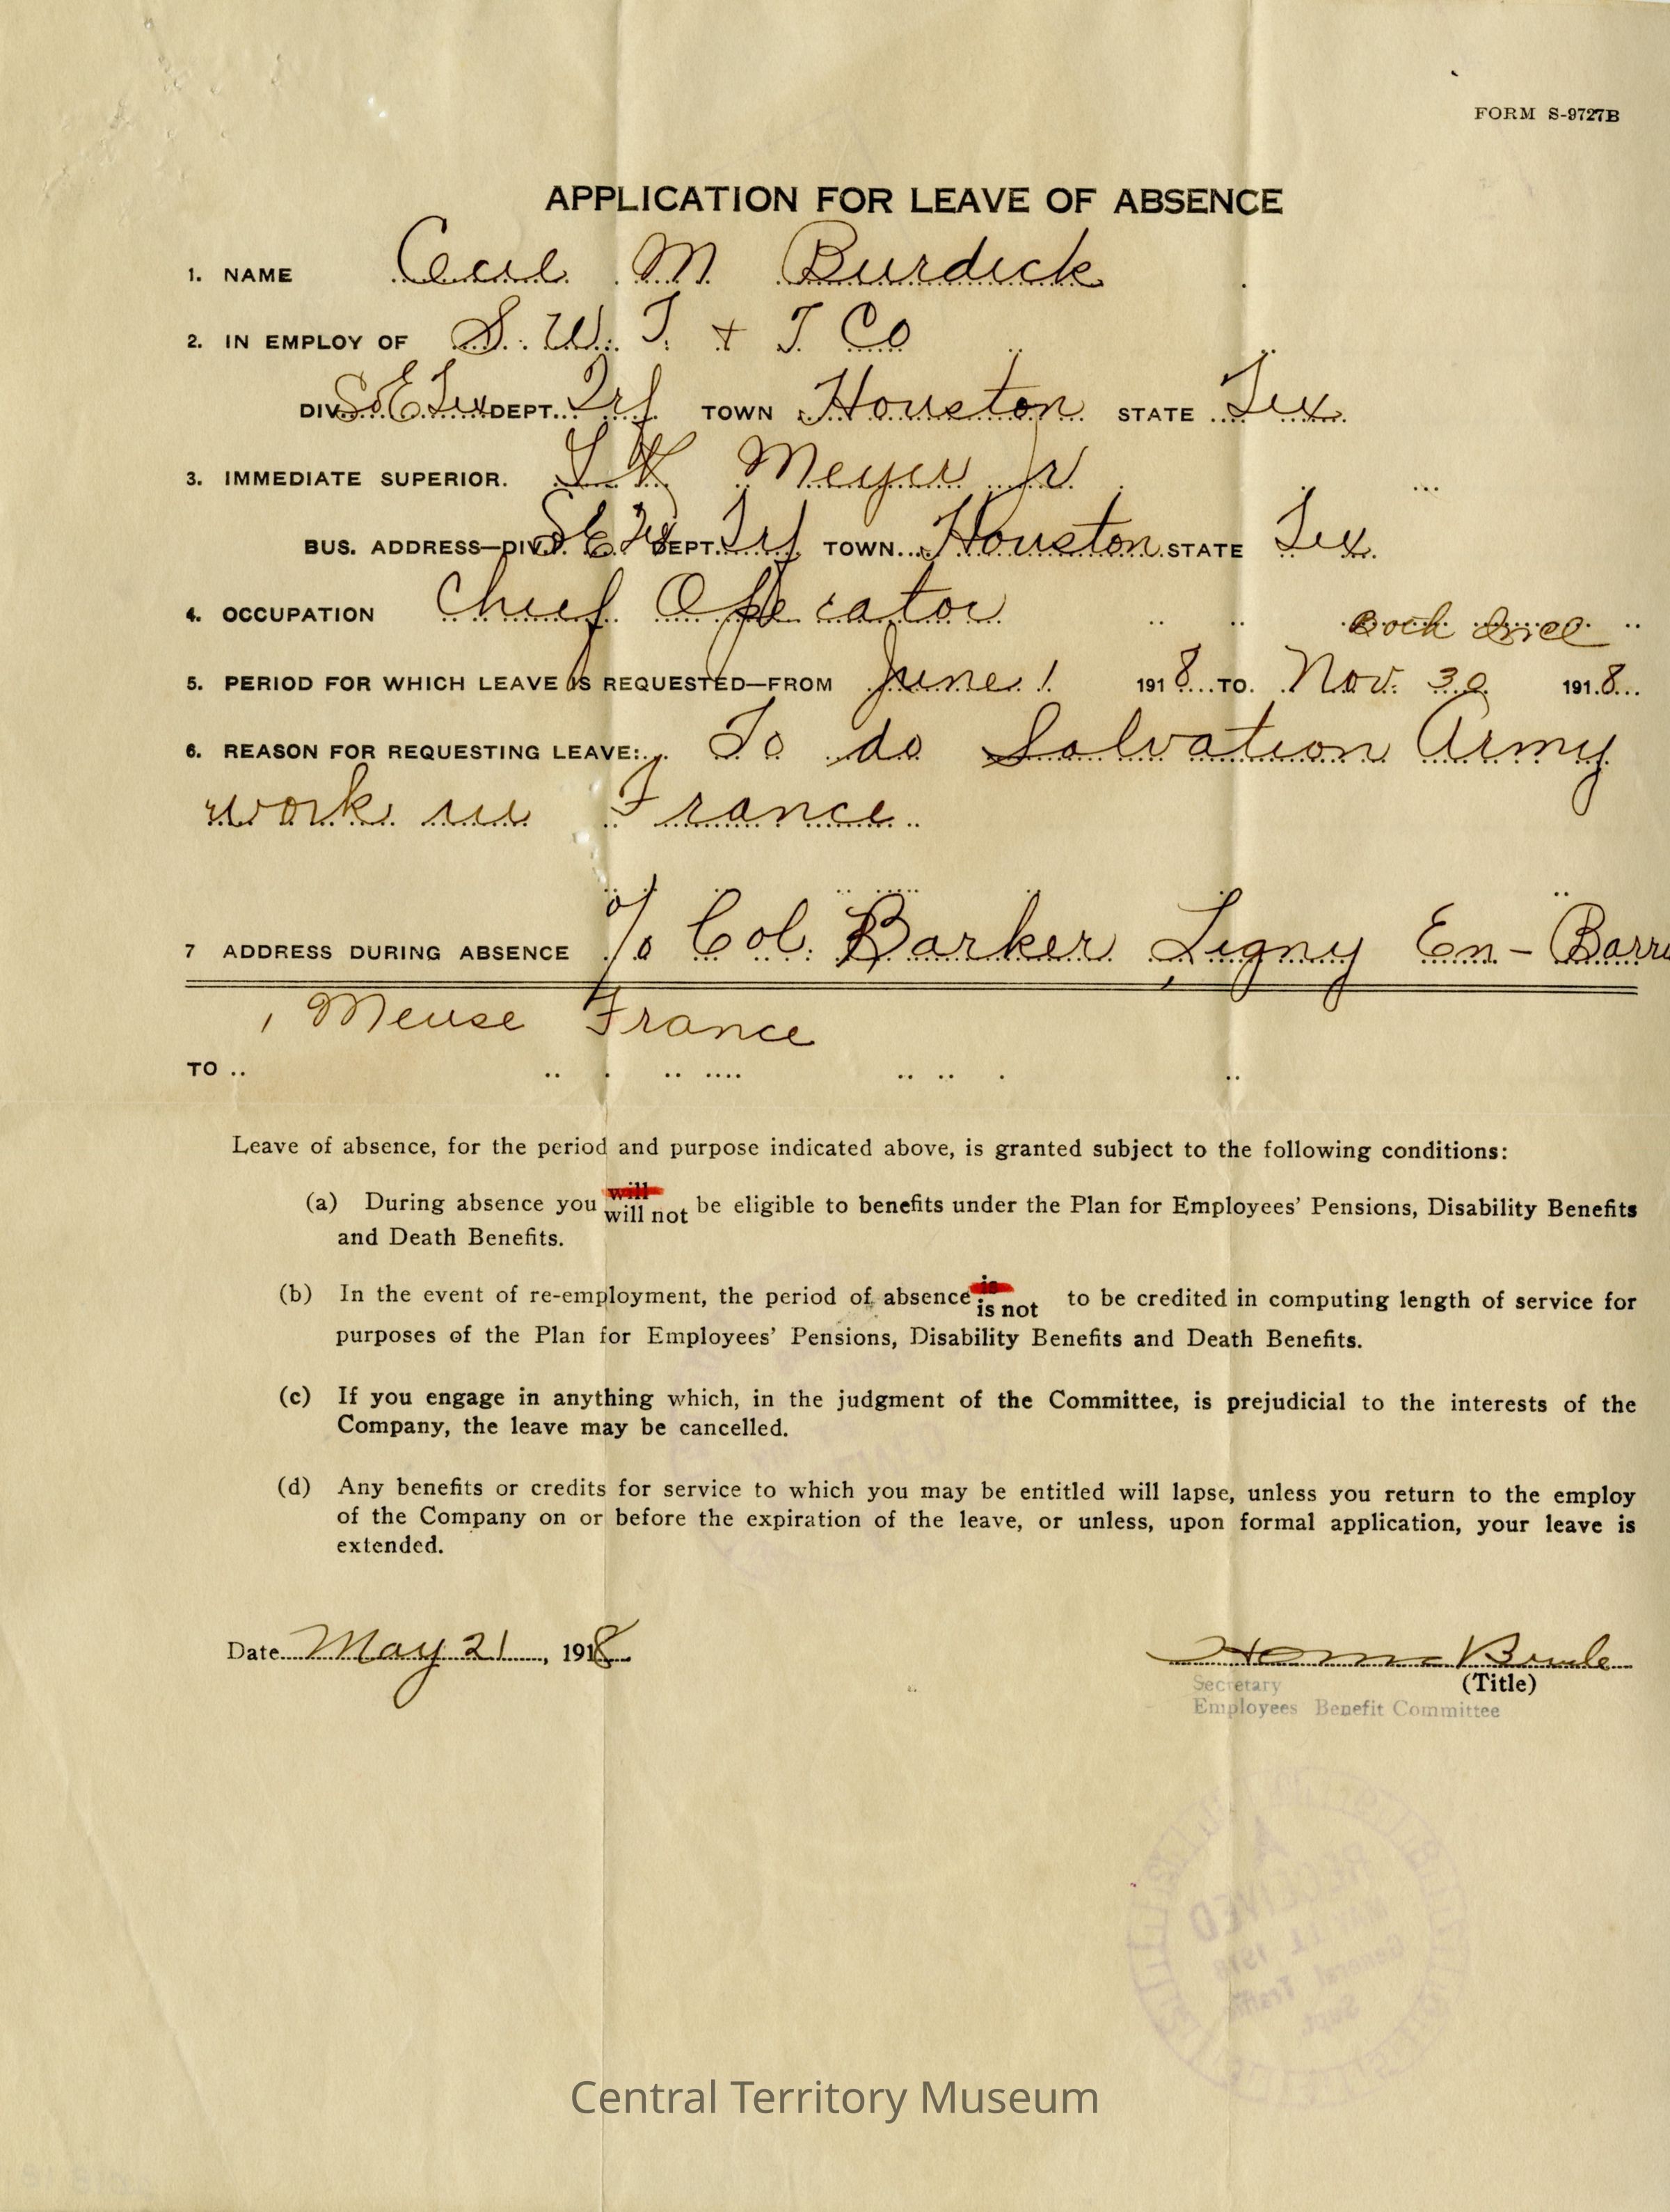 FORM S-9727B
APPLICATION FOR LEAVE OF ABSENCE
1. NAME Cecil M Burdick
2. IN EMPLOY OF S. W. T. + T Co
DIV. So E Tex DEPT. Trf TOWN Houston STATE Tex.
3. IMMEDIATE SUPERIOR. Meyer Jr
BUS. ADDRESS—DIV. DEPT. Trf TOWN Houston STATE Tex.
4. OCCUPATION Chief Operator
5. PERIOD FOR WHICH LEAVE IS REQUESTED—FROM June 1 1918 TO. Nov. 30 1918
6. REASON FOR REQUESTING LEAVE: To do Salvation Army
work in France
7 ADDRESS DURING ABSENCE c/o Col. Barker Ligny En- Barr
, Meuse France
TO
Leave of absence, for the period and purpose indicated above, is granted subject to the following conditions:
(a) During absence you will will not be eligible to benefits under the Plan for Employees' Pensions, Disability Benefits
and Death Benefits.
(b) In the event of re-employment, the period of absence is is not to be credited in computing length of service for
purposes of the Plan for Employees' Pensions, Disability Benefits and Death Benefits.
(c) If you engage in anything which, in the judgment of the Committee, is prejudicial to the interests of the
Company, the leave may be cancelled.
(d) Any benefits or credits for service to which you may be entitled will lapse, unless you return to the employ
of the Company on or before the expiration of the leave, or unless, upon formal application, your leave is
extended.
Date May 21, 1918
(Title)
Secretary
Employees Benefit Committee
RECEIVED
General Traffic
Supt.
Central Territory Museum